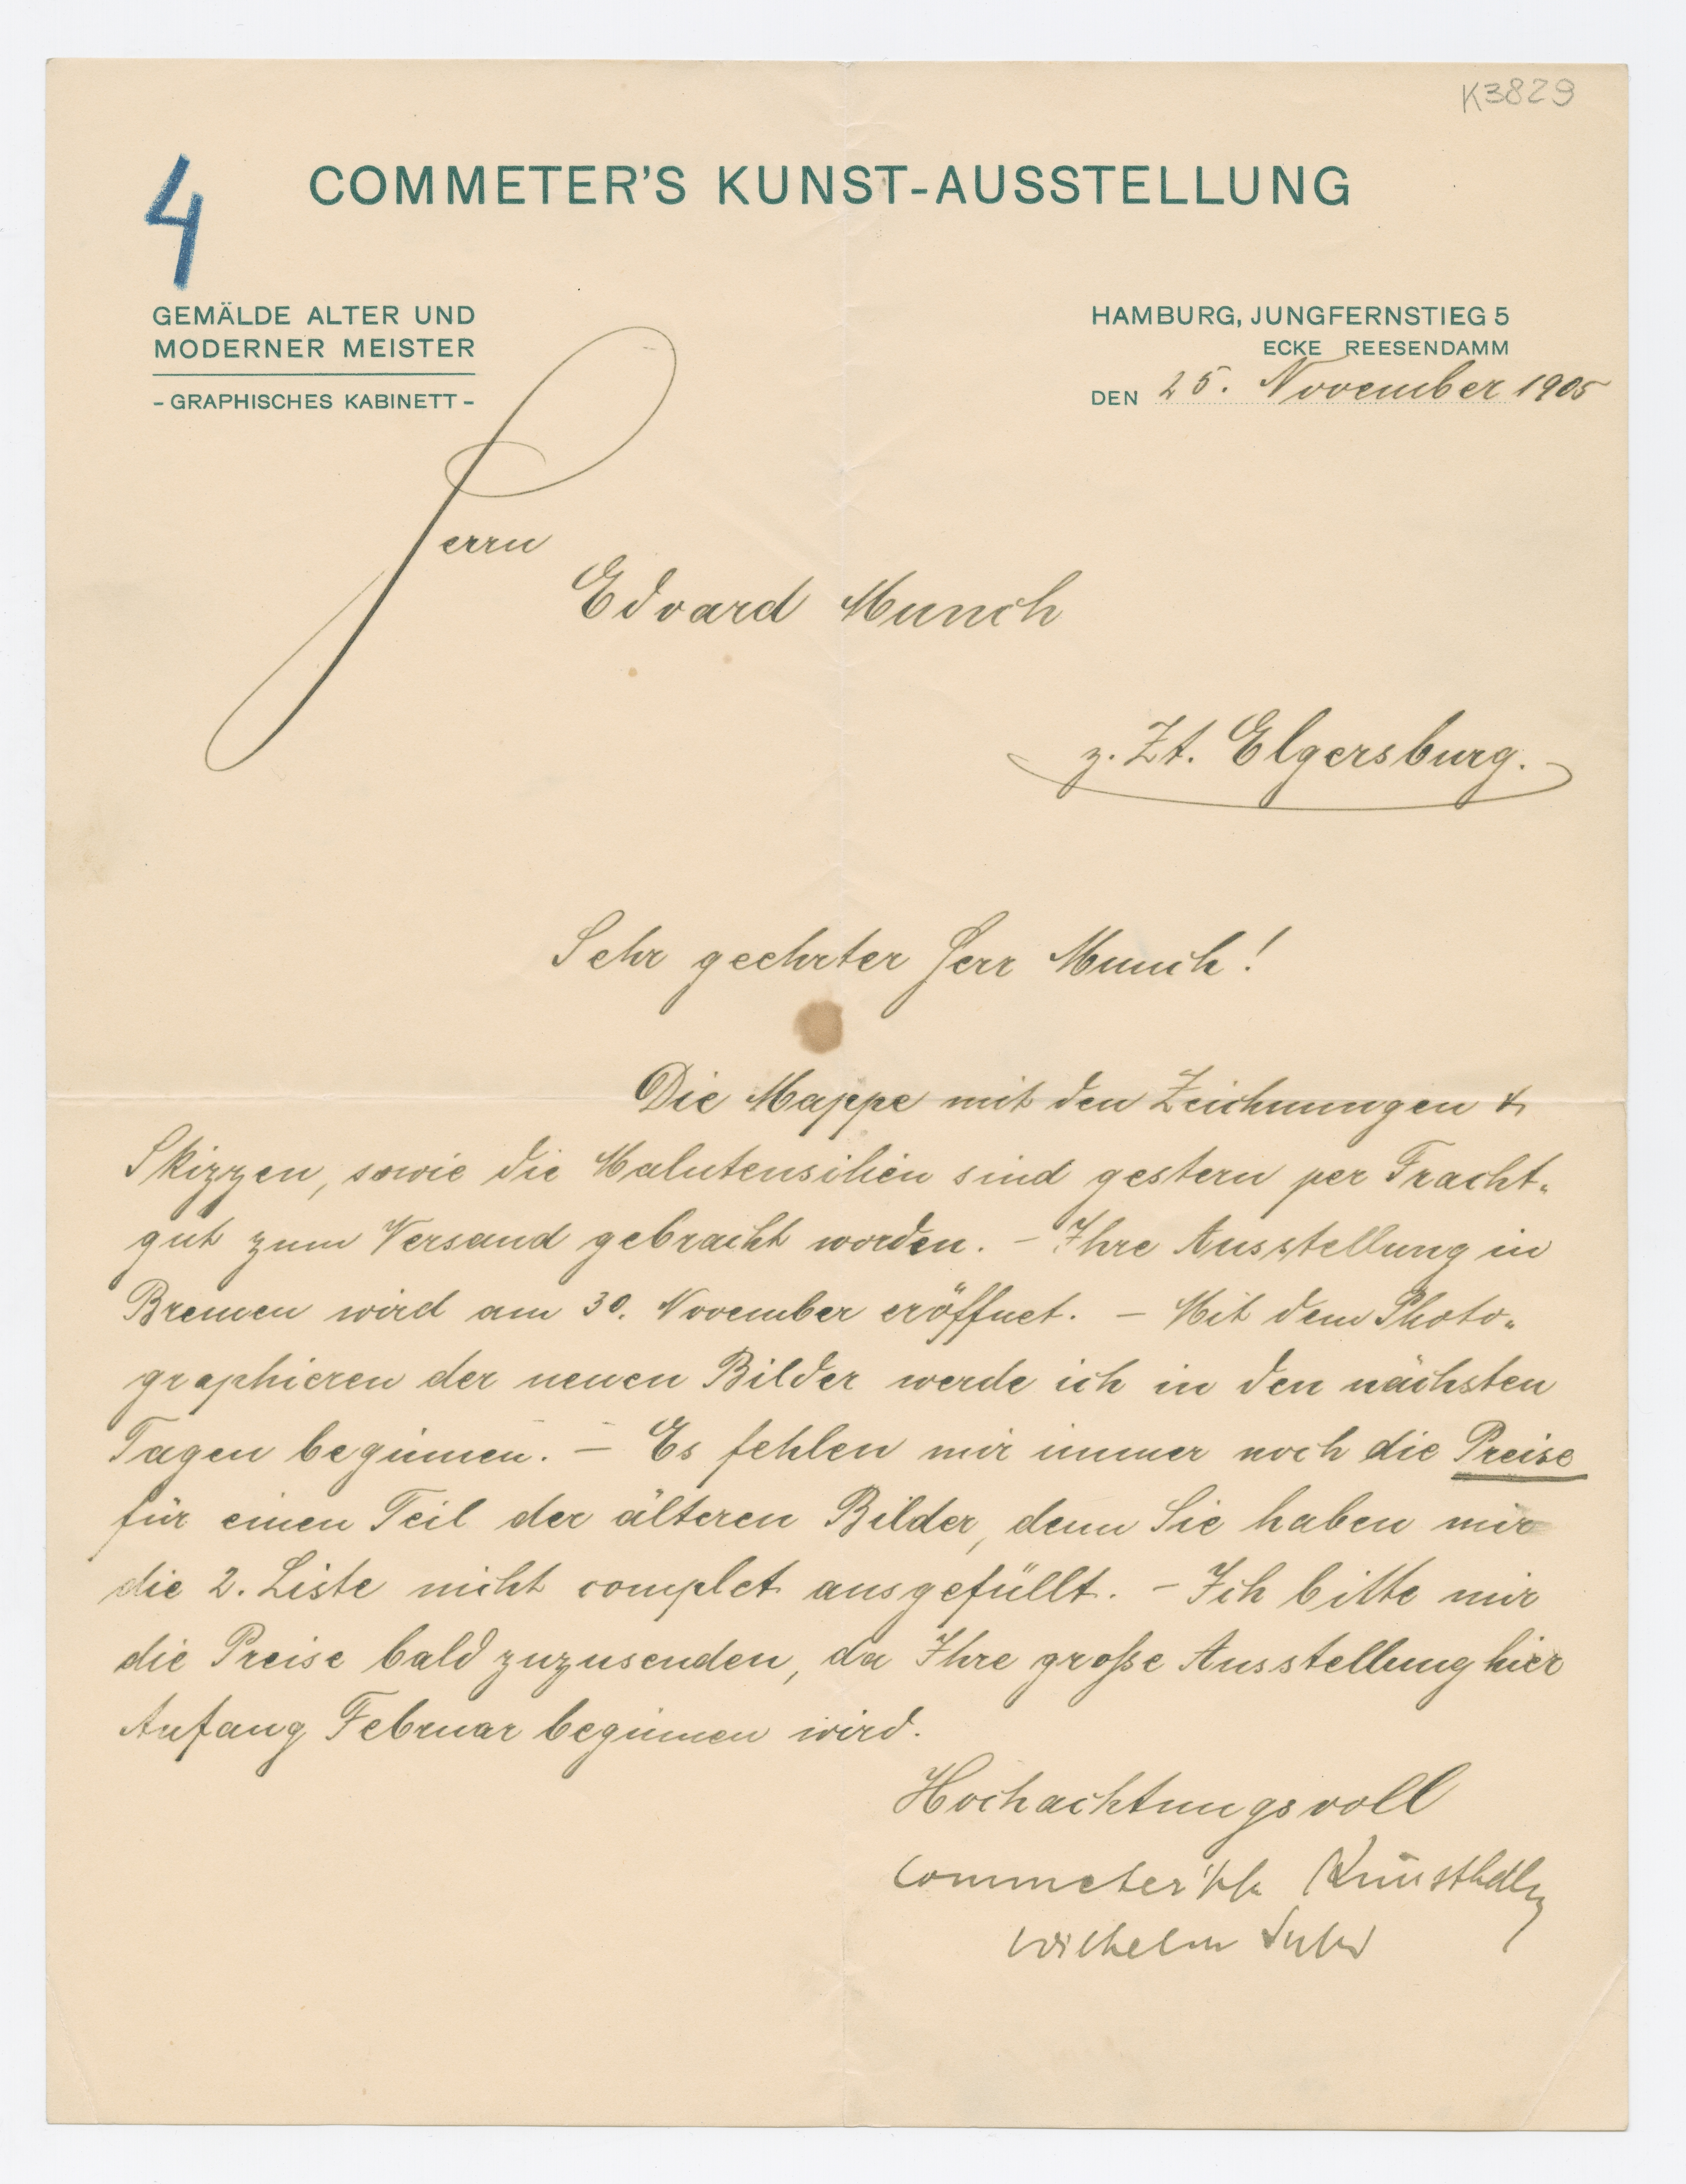 K3829
4
COMMETER'S KUNST-AUSSTELLUNG
GEMÄLDE ALTER UND
MODERNER MEISTER
- GRAPHISCHES KABINETT -
HAMBURG, JUNGFERNSTIEG 5
ECKE REESENDAMM
DEN 25. November 1905
Herrn
Edvard Munch
z. Zt. Elgersburg.
Sehr geehrter Herr Munch!
Die Mappe mit den Zeichnungen &
Skizzen, sowie die Malutensilien sind gestern per Fracht-
gut zum Versand gebracht worden. – Ihre Ausstellung in
Bremen wird am 30. November eröffnet. – Mit dem Photo-
graphieren der neuen Bilder werde ich in den nächsten
Tagen beginnen. – Es fehlen mir immer noch die Preise
für einen Teil der älteren Bilder, denn Sie haben mir
die 2. Liste nicht complet ausgefüllt. – Ich bitte mir
die Preise bald zuzusenden, da Ihre große Ausstellung hier
Anfang Februar beginnen wird.
Hochachtungsvoll
Commeter'sche Kunsthdlg
Wilhelm Suhr